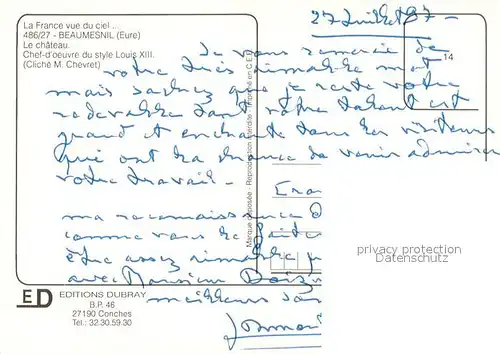 La France vue du ciel ...
486/27 - BEAUMESNIL (Eure)
Le château.
Chef-d'oeuvre du style Louis XIII.
(Cliché M. Chevret)
27 Juillet 97 -
14
Je vous remercie de
votre très aimable mot
mais sachez que je reste votre
redevable tant votre talent est
grand et enchante tous les visiteurs
qui ont la chance de venir admirer
votre travail -
ma reconnaissance
comme vous le
être assez aimable
avec Monsieur
meilleurs
Marque déposée - Reproduction interdite - Printed in C.E.E.
privacy protection
Datenschutz
ED
EDITIONS DUBRAY
B.P. 46
27190 Conches
Tel.: 32.30.59.30